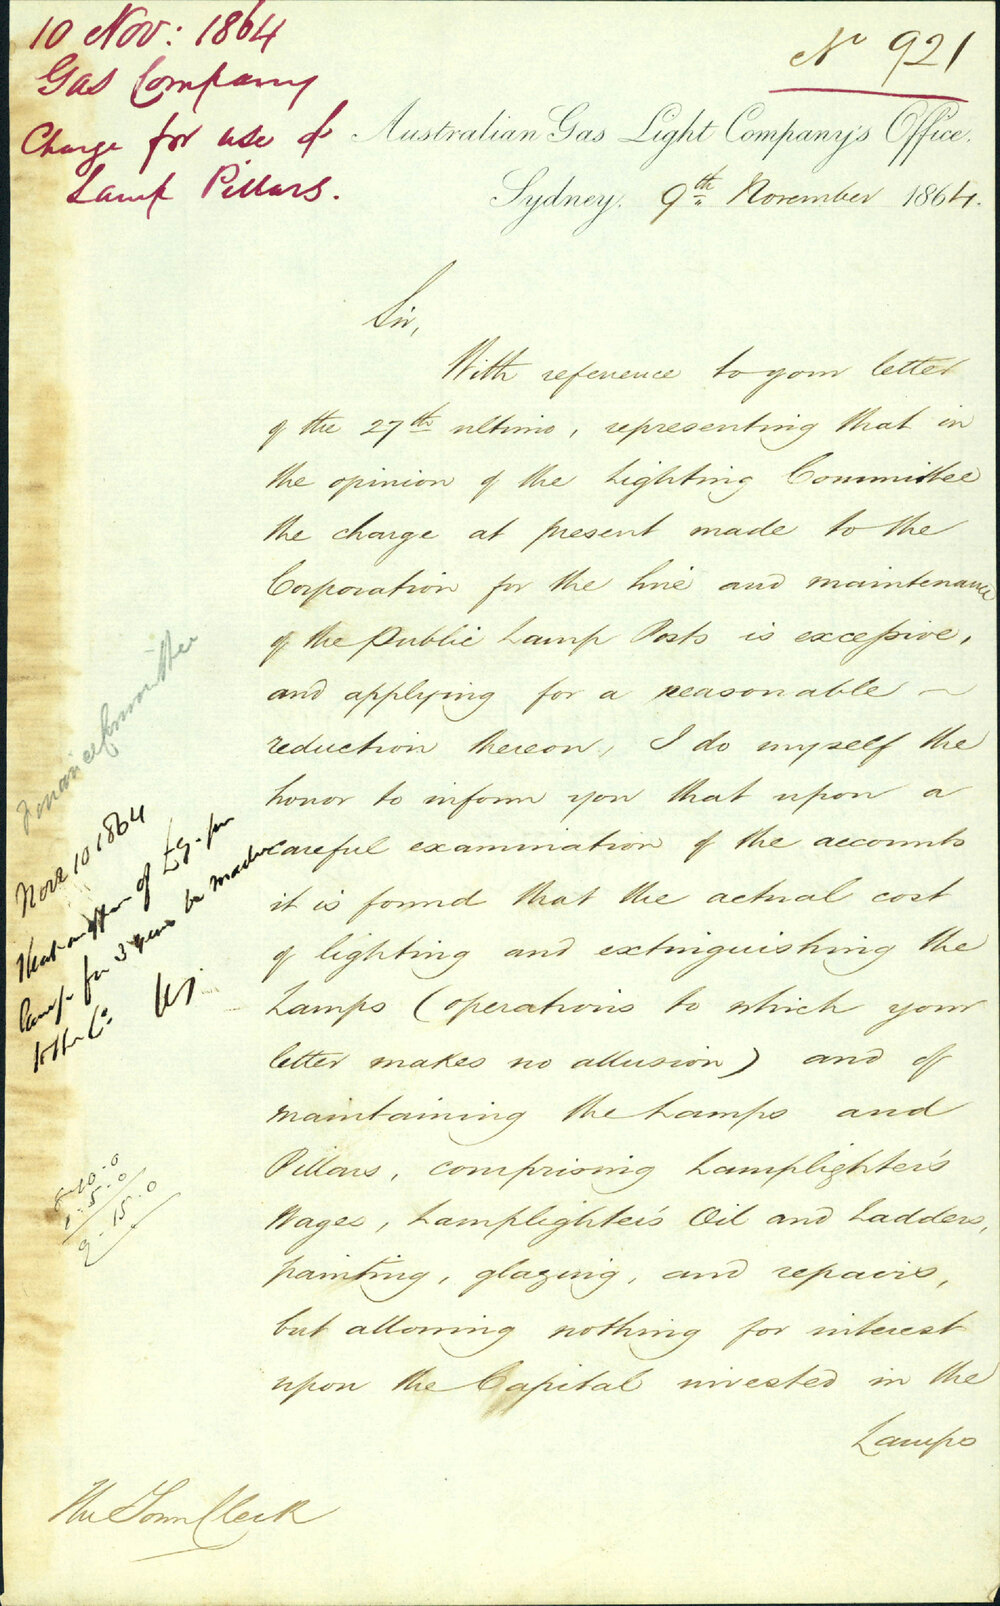 10 Nov: 1864
Gas Company
Charge for use of
Lamp Pillars.
No 921
Australian Gas Light Company's Office.
Sydney. 9th November 1864.
Sir,
With reference to your letter
of the 27th ultimo, representing that in
the opinion of the Lighting Committee
the charge at present made to the
Corporation for the hire and maintenance
of the Public Lamp Posts is excessive,
and applying for a reasonable
reduction thereon, I do myself the
honor to inform you that upon a
careful examination of the accounts
it is found that the actual cost
of lighting and extinguishing the
Lamps (operations to which your
letter makes no allusion) and of
maintaining the Lamps and
Pillars, comprising Lamplighter's
Wages, Lamplighter's Oil and Ladders,
painting, glazing, and repairs,
but allowing nothing for interest
upon the Capital invested in the
Lamps
The Town Clerk
Finance Committee
Nov 10 1864
That an offer of £9. per
lamp for 3 years be made
to the Co.
8-10-0
1-5-0
9-15-0